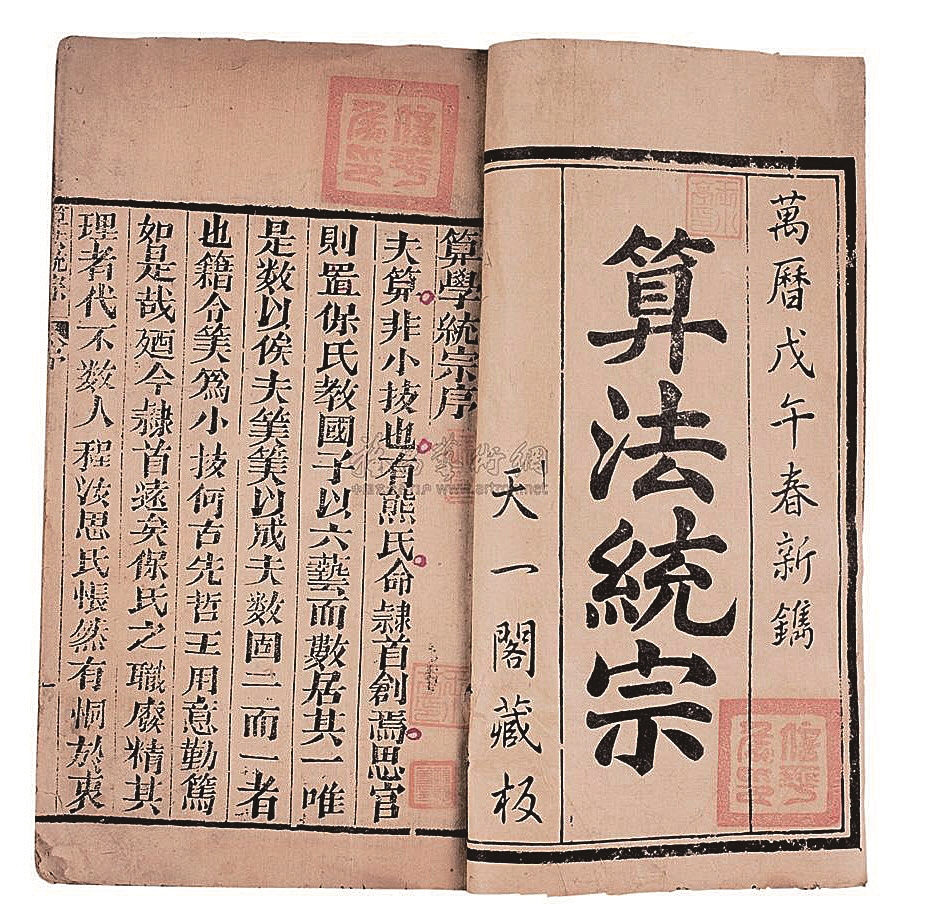 萬曆戊午春新鐫
算法統宗
天一閣藏板
算學統宗序
夫算非小技也有熊氏命隷首創焉思官
則置保氏教國子以六藝而數居其一唯
是數以俟夫筭筭以成夫數固二而一者
也籍令筭爲小技何古先哲王用意勤篤
如是哉廼今隷首遠矣保氏之職廢精其
理者代不數人程汝思氏悵然有恫於衷